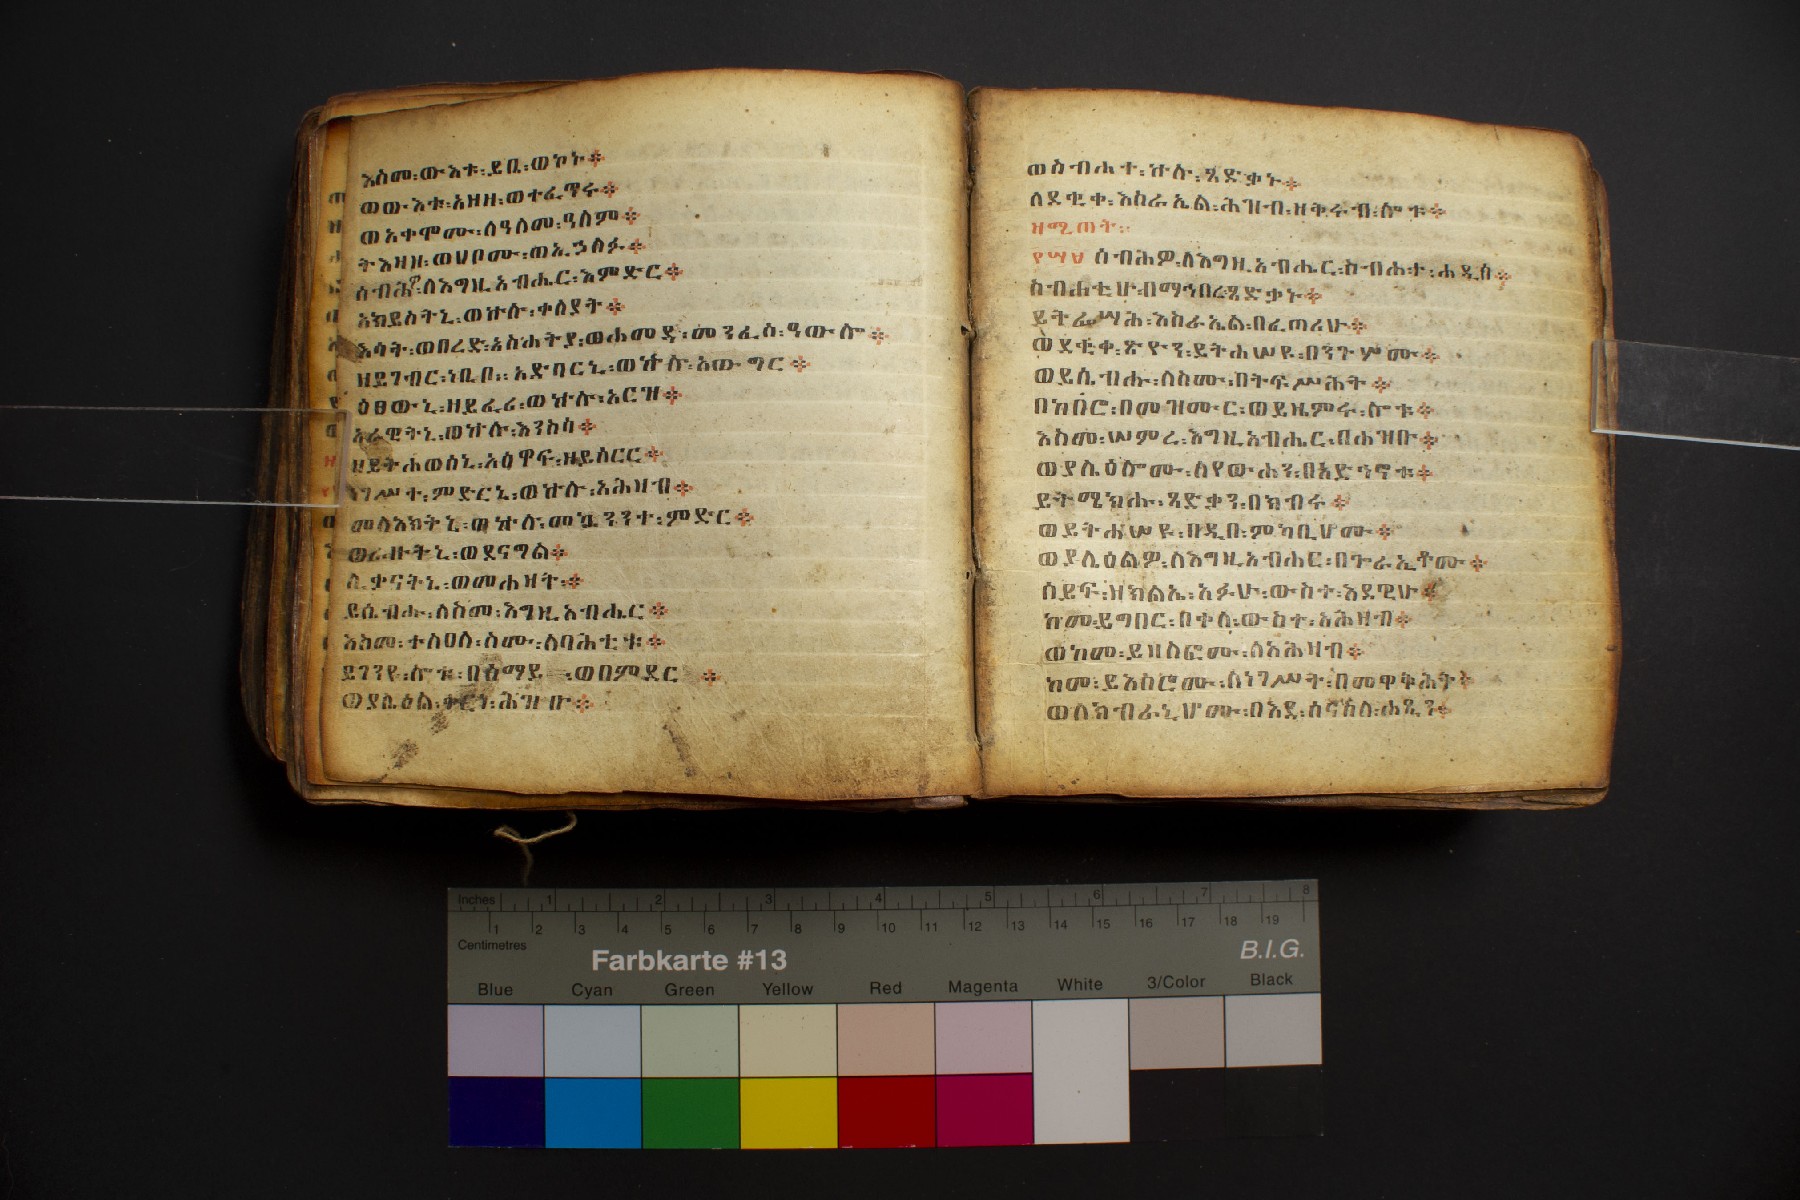 እስመ፡ውእቱ፡ይቤ፡ወኮኑ፨
ወውእቱ፡አዘዘ፡ወተፈጥሩ፨
ወአቀሞሙ፡ለዓለመ፡ዓለም፨
ትእዛዘ፡ወሀቦሙ፡ወኢኃለፉ፨
ሰብሕዎ፡ለእግዚአብሔር፡እምድር፨
አክይስትኒ፡ወኵሉ፡ቀላያት፨
እሳት፡ወበረድ፡አስሐትያ፡ወሐመዳ፡መንፈስ፡ዓውሎ፨
ዘይገብር፡ነቢቦ፡፡አድባርኒ፡ወኵሉ፡አውግር፨
ዕፀውኒ፡ዘይፈሪ፡ወኵሉ፡አርዝ፨
አራዊትኒ፡ወኵሉ፡እንስሳ፨
ዘይትሐወስኒ፡አዕዋፍ፡ዘይሰርር፨
ነገሥተ፡ምድርኒ፡ወኵሉ፡አሕዛብ፨
መላእክትኒ፡ወኵሉ፡መኳንንተ፡ምድር፨
ወራዙትኒ፡ወደናግል፨
ሊቃናትኒ፡ወመሐዛት፡፨
ይሴብሑ፡ለስመ፡እግዚአብሔር፨
እስመ፡ተለዐለ፡ስሙ፡ለባሕቲቱ፨
ይገንዩ፡ሎቱ፡በሰማይ፡ወበምደር፨
ወያሌዕል፡ቀርነ፡ሕዝቡ፨
ወስብሐተ፡ኵሉ፡ጻድቃኑ፨
ለደቂቀ፡እስራኤል፡ሕዝብ፡ዘቅሩብ፡ሎቱ፨
ዘሚጠት፡፡
፻፵፱ ሰብሕዎ፡ለእግዚአብሔር፡ስብሐተ፡ሐዲሰ፨
ስብሐቲሁ፡በማኅበረ፡ጻድቃኑ፨
ይትፌሣሕ፡እስራኤል፡በፈጣሪሁ፨
ወደቂቀ፡ጽዮን፡ይትሐሠዩ፡በንጉሦሙ፨
ወይሴብሑ፡ለስሙ፡በትፍሥሕት፨
በከበሮ፡በመዝሙር፡ወይዜምሩ፡ሎቱ፨
እስመ፡ሠምረ፡እግዚአብሔር፡በሕዝቡ፨
ወያሌዕሎሙ፡ለየውሐን፡በአድኅኖቱ፨
ይትሜክሑ፡ጻድቃን፡በክብሩ፨
ወይትሐሠዩ፡በዲበ፡ምካቢሆሙ፨
ወያሌዕልዎ፡ለእግዚአብሔር፡በጕራኢቶሙ፨
ሰይፍ፡ዝክልኤ፡አፉሁ፡ውስተ፡እደዊሁ፨
ከመ፡ይግበር፡በቀለ፡ውስተ፡አሕዛብ፨
ወከመ፡ይዛለፎሙ፡ለአሕዛብ፨
ከመ፡ይእስሮሙ፡ለነገሥት፡በመዋቅሕት፨
ወለክቡራኒሆሙ፡በእደ፡ሰናስለ፡ሐጺን፨